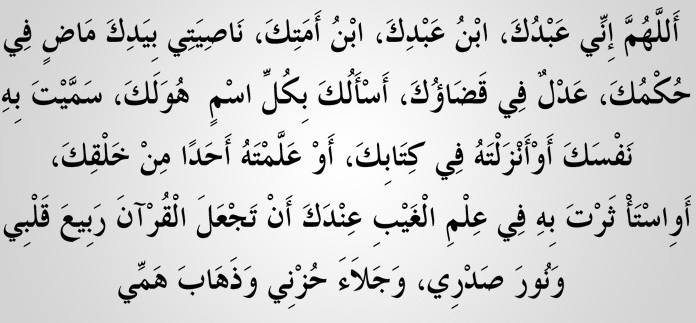 أَللَّهُمَّ إِنِّي عَبْدُكَ، ابْنُ عَبْدِكَ، ابْنُ أَمَتِكَ، نَاصِيَتِي بِيَدِكَ مَاضٍ فِي
حُكْمُكَ، عَدْلٌ فِي قَضَاؤُكَ، أَسْأَلُكَ بِكُلِّ اسْمٍ هُوَلَكَ، سَمَّيْتَ بِهِ
نَفْسَكَ أَوْأَنْزَلْتَهُ فِي كِتَابِكَ، أَوْ عَلَّمْتَهُ أَحَدًا مِنْ خَلْقِكَ،
أَوِاسْتَأْ ثَرْتَ بِهِ فِي عِلْمِ الْغَيْبِ عِنْدَكَ أَنْ تَجْعَلَ الْقُرْآنَ رَبِيعَ قَلْبِي
وَنُورَ صَدْرِي، وَجَلاَءَ حُزْنِي وَذَهَابَ هَمِّي